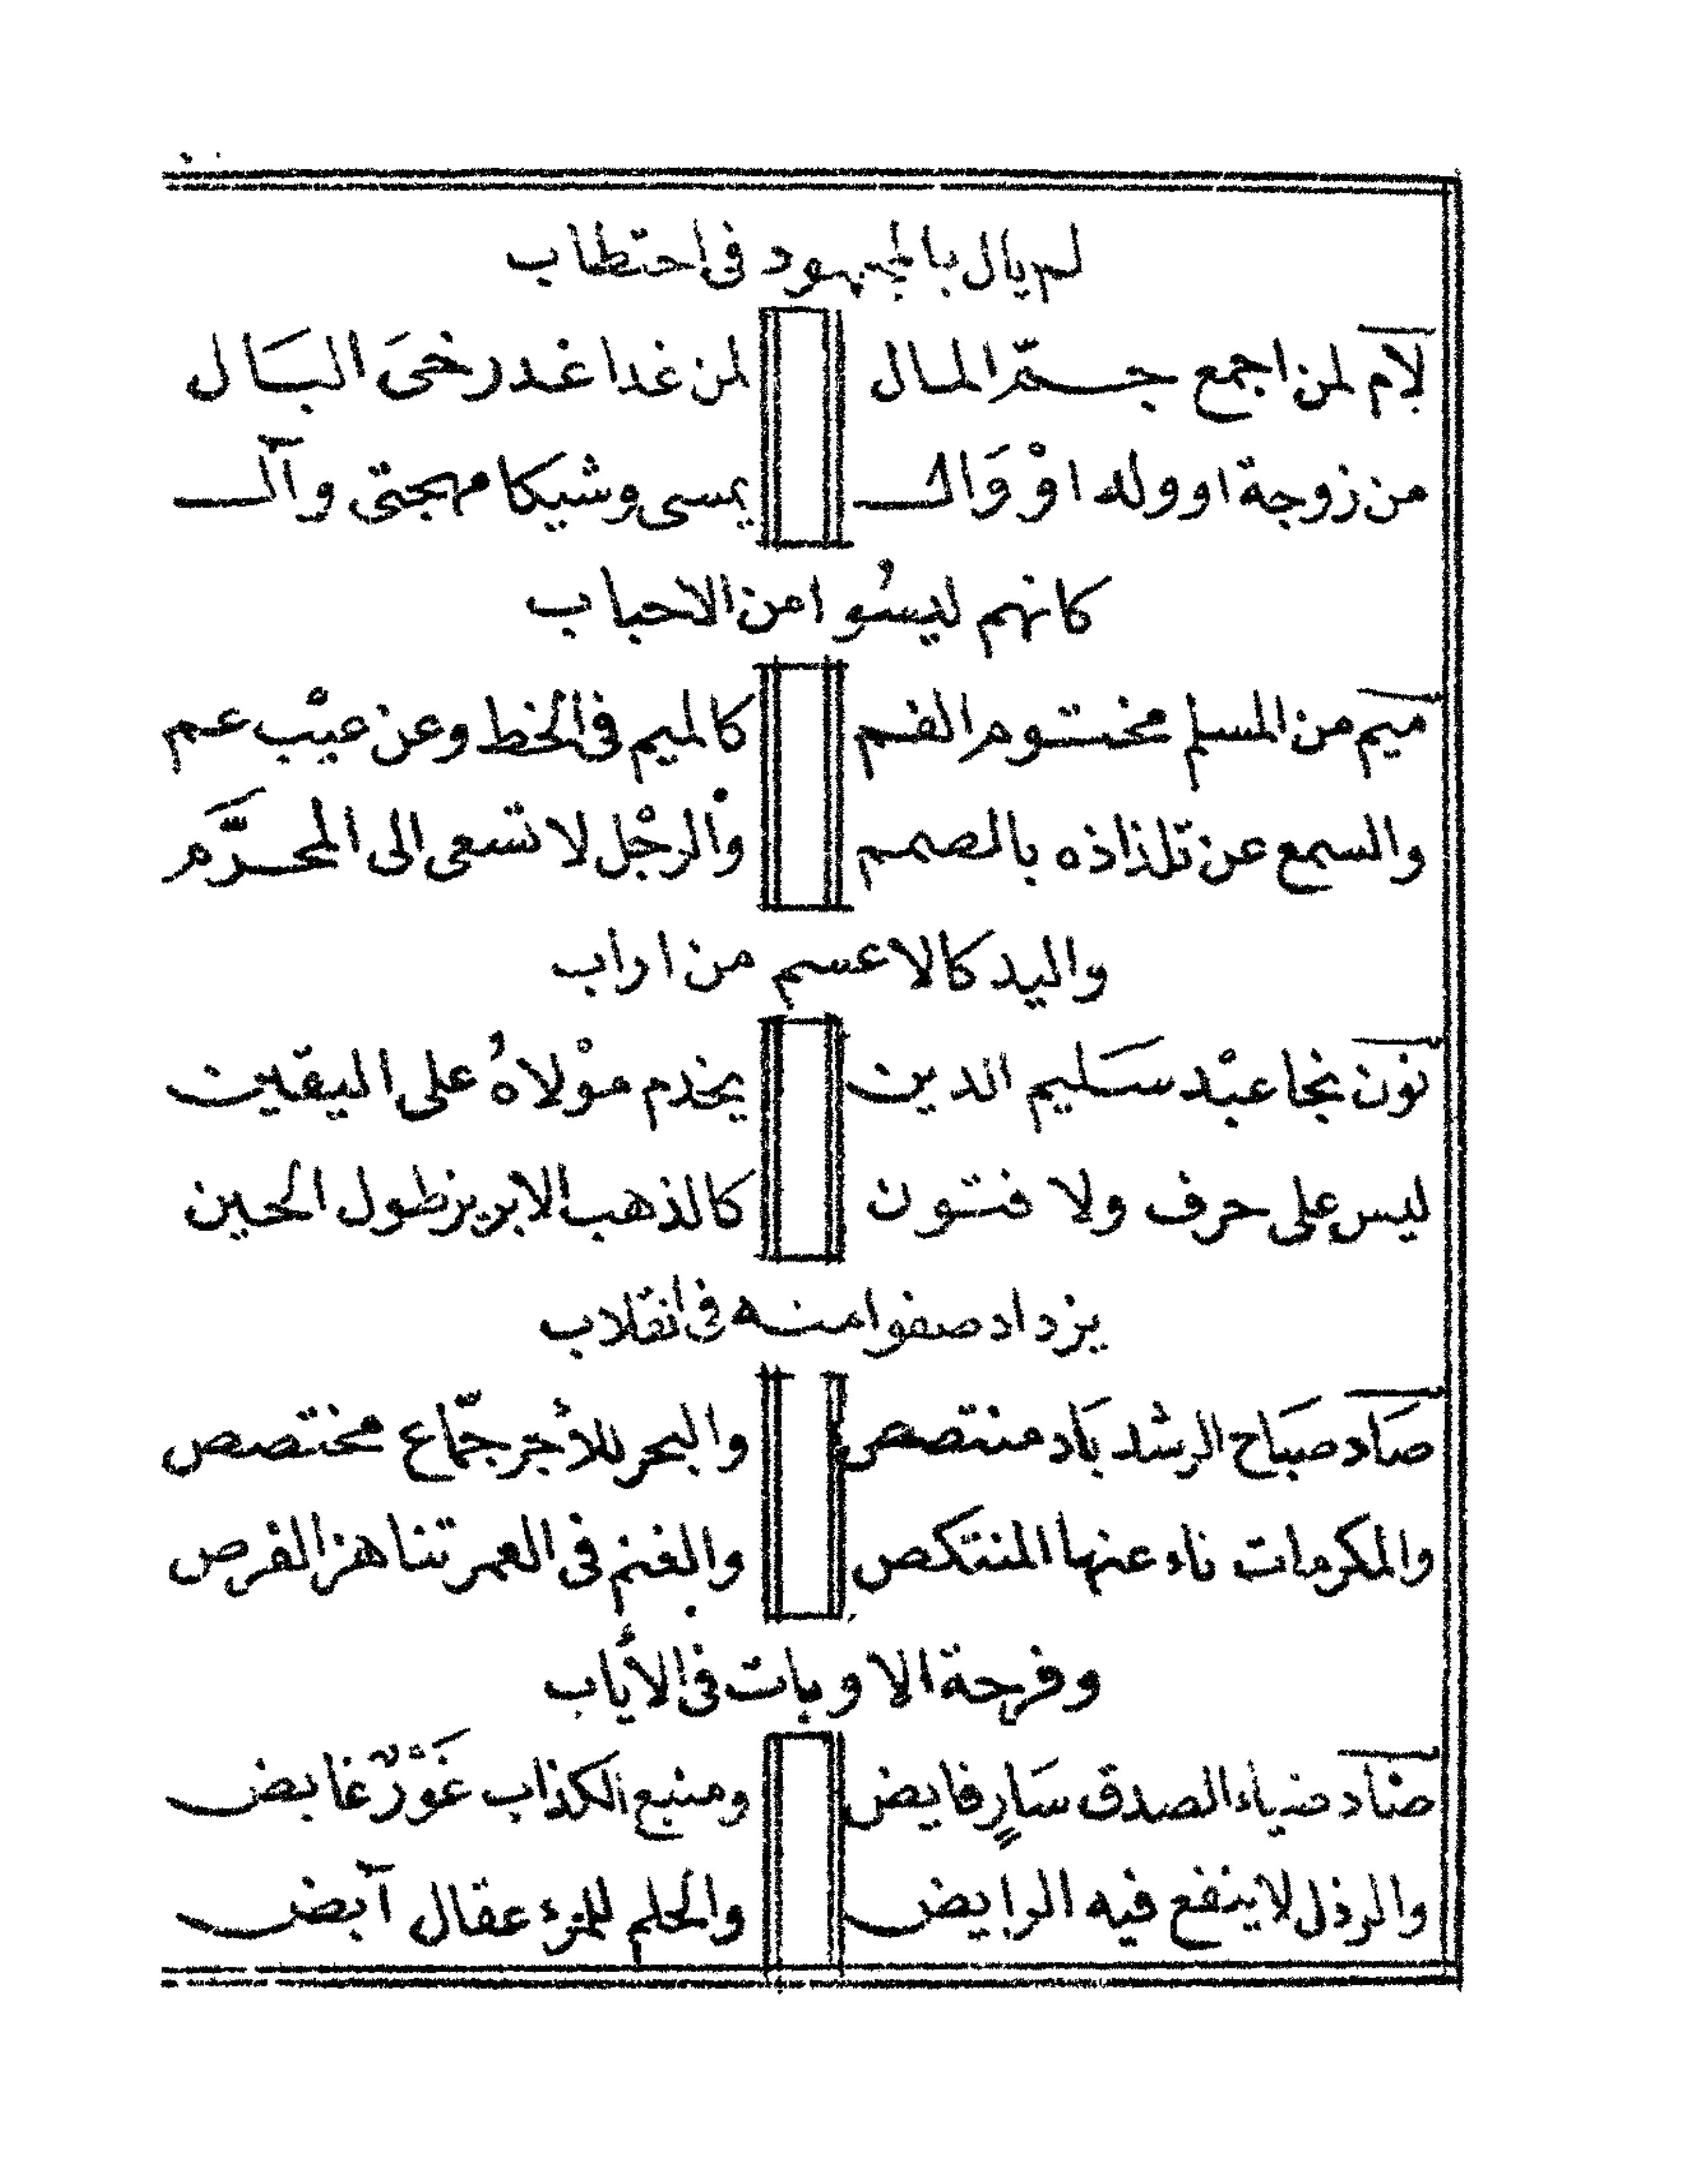 لم يال بالجهود فى احتطاب
لآم لمن اجمع جمّ المال لمن غدا غدر خىَ البَال
من زوجة او ولد اوْ وَال يمسى وشيكا مهجتى وآل
كانهم ليسُوا من الاحباب
ميم من المسلم مختوم الفم كالميم فى الخط وعن عيْب عم
والسمع عن تلذاذه بالصمم والرجْل لا تسعى الى المحرَّم
واليد كالاعسم من اراب
نون نجا عبْد سَليم الدين يخدم موْلاهُ على اليقين
ليس على حرف ولا فتون كالذهب الابريز طول الحين
يزداد صفوا منه فى انقلاب
صَاد صبَاح الرشد بَاد منتصص والبحر للأجر جمّاع مختصص
والمكرمات ناء عنها المنتكص والغنم فى العمر تناهز الفرص
وفرحة الاوبات فى الأياب
ضَاد ضياء الصدق سَارٍ فايض ومنبع الكذاب غَوْرٌ غايض
والرذل لا ينفع فيه الرايض والحلم للمرء عقال آبض